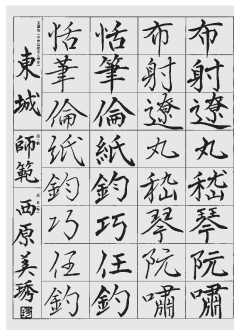 布射遼丸嵇琴阮嘯
布射遼丸嵇琴阮嘯
恬筆倫紙鈞巧任釣
恬筆倫紙鈞巧任釣
東城 師範 西原美琇